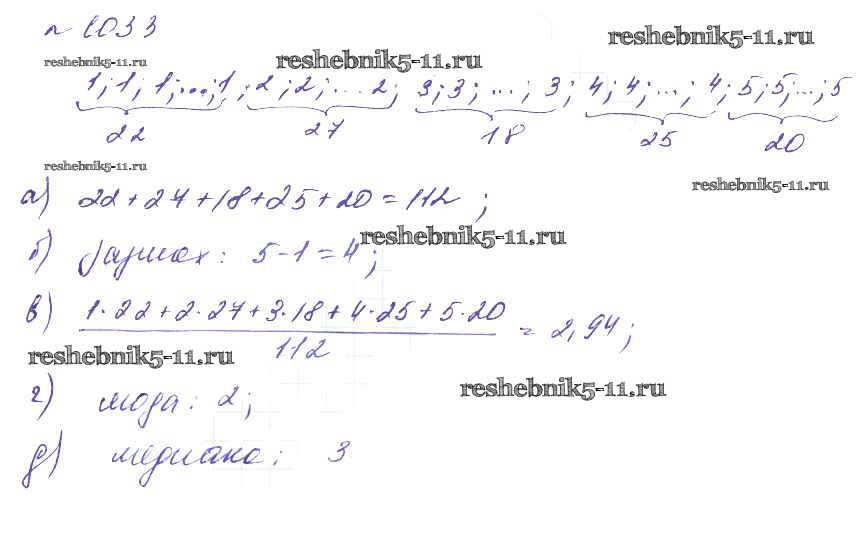 № 1033
reshebnik5-11.ru
reshebnik5-11.ru
reshebnik5-11.ru
1; 1; 1; ...; 1; 2; 2; ... 2; 3; 3; ...; 3; 4; 4; ...; 4; 5; 5; ...; 5
22 27 18 25 20
reshebnik5-11.ru
reshebnik5-11.ru
а) 22 + 27 + 18 + 25 + 20 = 112 ;
reshebnik5-11.ru
б) размах: 5 - 1 = 4;
в) 1·22 + 2·27 + 3·18 + 4·25 + 5·20 = 2,94;
112
reshebnik5-11.ru
reshebnik5-11.ru
г) мода: 2;
д) медиана: 3